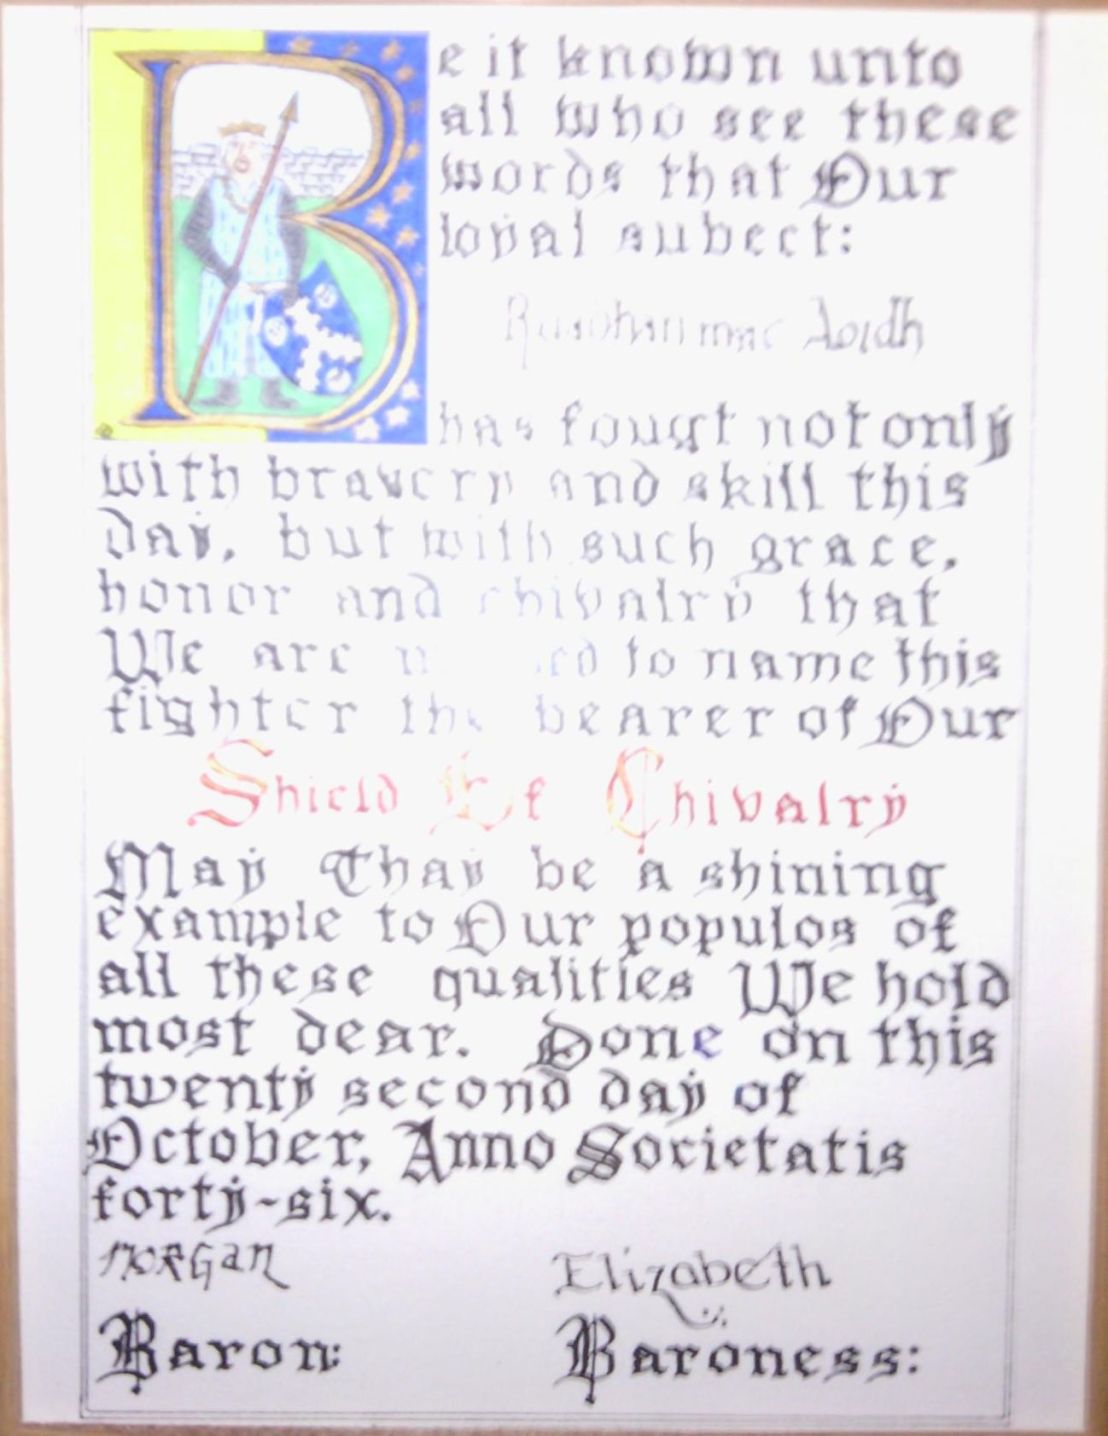 Be it known unto
all who see these
words that Our
loyal subect:
mac Aoidh
has fougt not only
with bravery and skill this
day, but with such grace,
honor and chivalry that
We are to name this
fighter the bearer of Our
Shield Of Chivalry
May Thay be a shining
example to Our populos of
all these qualities We hold
most dear. Done on this
twenty second day of
October, Anno Societatis
forty-six.
Morgan Elizabeth
Baron: Baroness: